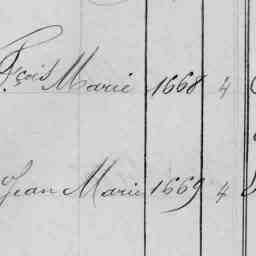 Fçois Marie 1668 4
Jean Marie 1669 4